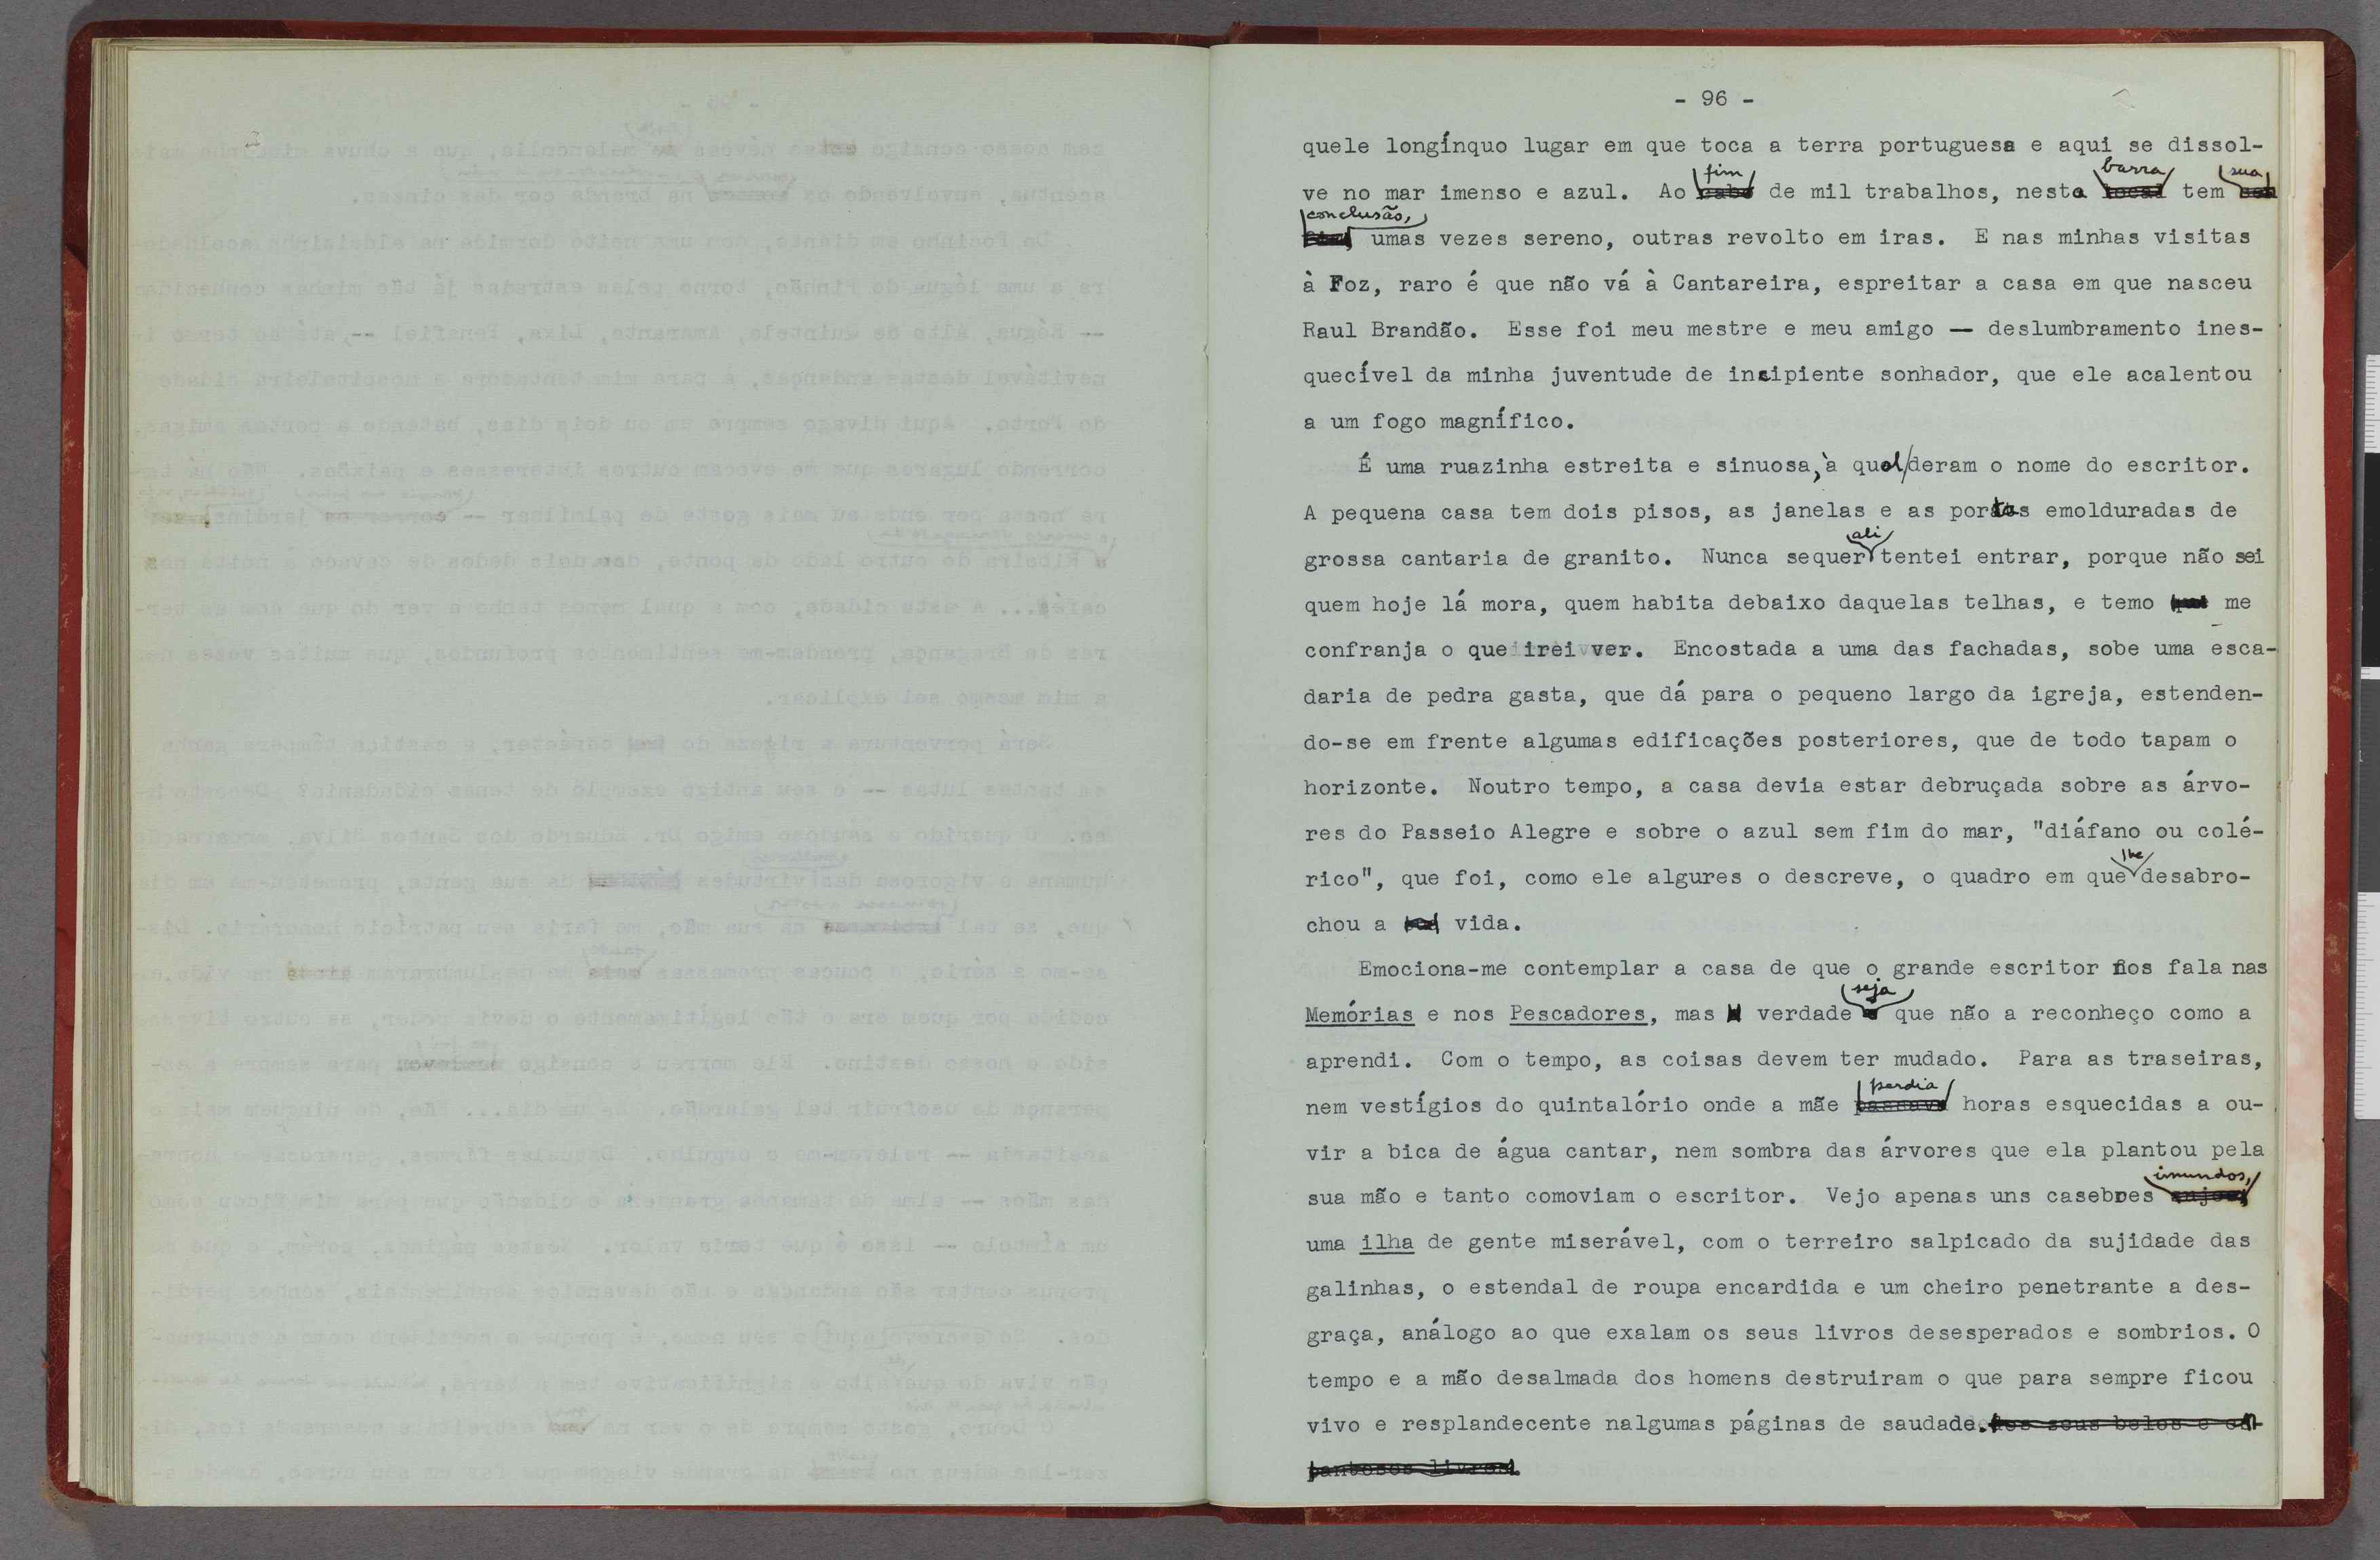 - 96 -
quele longínquo lugar em que toca a terra portuguesa e aqui se dissol-
fim barra sua
ve no mar imenso e azul. Ao cabo de mil trabalhos, nesta local tem seu
conclusão,
fim, umas vezes sereno, outras revolto em iras. E nas minhas visitas
à Foz, raro é que não vá à Cantareira, espreitar a casa em que nasceu
Raul Brandão. Esse foi meu mestre e meu amigo — deslumbramento ines-
quecível da minha juventude de incipiente sonhador, que ele acalentou
a um fogo magnífico.
É uma ruazinha estreita e sinuosa, à qual/deram o nome do escritor.
A pequena casa tem dois pisos, as janelas e as portas emolduradas de
ali
grossa cantaria de granito. Nunca sequer tentei entrar, porque não sei
quem hoje lá mora, quem habita debaixo daquelas telhas, e temo que me
confranja o que irei ver. Encostada a uma das fachadas, sobe uma esca-
daria de pedra gasta, que dá para o pequeno largo da igreja, estenden-
do-se em frente algumas edificações posteriores, que de todo tapam o
horizonte. Noutro tempo, a casa devia estar debruçada sobre as árvo-
res do Passeio Alegre e sobre o azul sem fim do mar, "diáfano ou colé-
lhe
rico", que foi, como ele algures o descreve, o quadro em que desabro-
chou a vida.
Emociona-me contemplar a casa de que o grande escritor nos fala nas
seja
Memórias e nos Pescadores, mas verdade que não a reconheço como a
aprendi. Com o tempo, as coisas devem ter mudado. Para as traseiras,
perdia
nem vestígios do quintalório onde a mãe passava horas esquecidas a ou-
vir a bica de água cantar, nem sombra das árvores que ela plantou pela
imundos,
sua mão e tanto comoviam o escritor. Vejo apenas uns casebres sujos,
uma ilha de gente miserável, com o terreiro salpicado da sujidade das
galinhas, o estendal de roupa encardida e um cheiro penetrante a des-
graça, análogo ao que exalam os seus livros desesperados e sombrios. O
tempo e a mão desalmada dos homens destruiram o que para sempre ficou
vivo e resplandecente nalgumas páginas de saudade. dos seus belos e es-
pantosos livros.